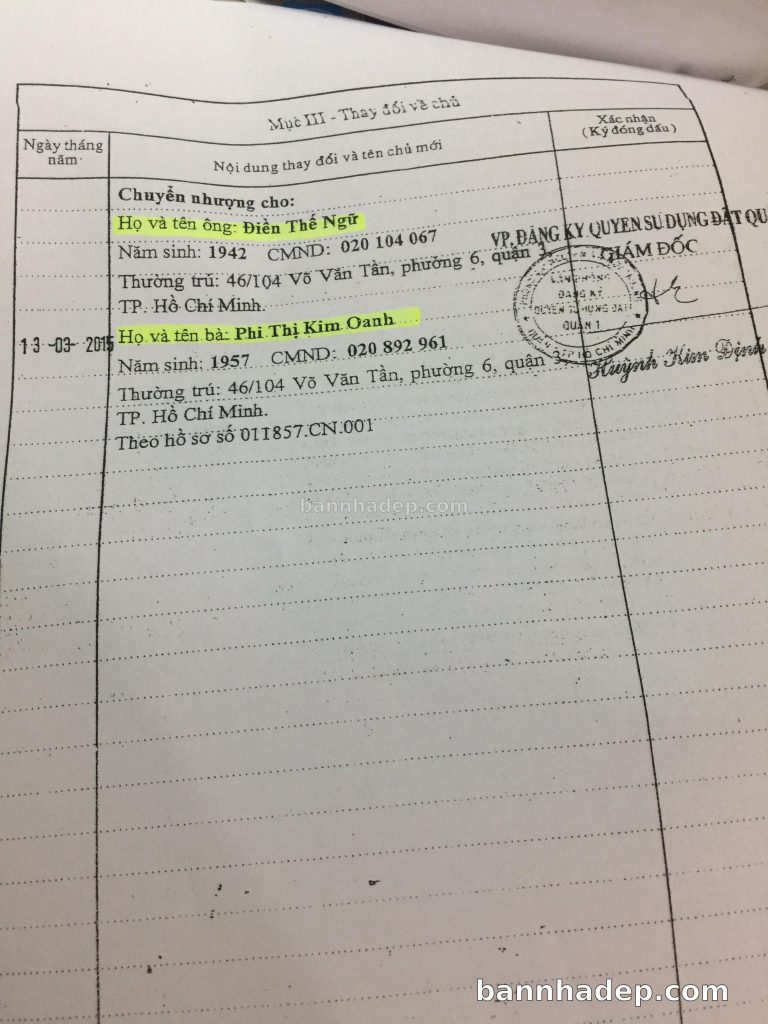 Mục III - Thay đổi về chủ
Ngày tháng năm
Nội dung thay đổi và tên chủ mới
Xác nhận
(Ký đóng dấu)
Chuyển nhượng cho:
Họ và tên ông: Điền Thế Ngữ
Năm sinh: 1942 CMND: 020 104 067
Thường trú: 46/104 Võ Văn Tần, phường 6, quận 3,
TP. Hồ Chí Minh.
13-03-2015
Họ và tên bà: Phi Thị Kim Oanh
Năm sinh: 1957 CMND: 020 892 961
Thường trú: 46/104 Võ Văn Tần, phường 6, quận
TP. Hồ Chí Minh.
Theo hồ sơ số 011857.CN.001
VP. ĐĂNG KÝ QUYỀN SỬ DỤNG ĐẤT QU
GIÁM ĐỐC
VĂN PHÒNG
ĐĂNG KÝ
QUYỀN SỬ DỤNG ĐẤT
QUẬN 1
TP HỒ CHÍ MINH
Huỳnh Kim Định
bannhadep.com
bannhadep.com